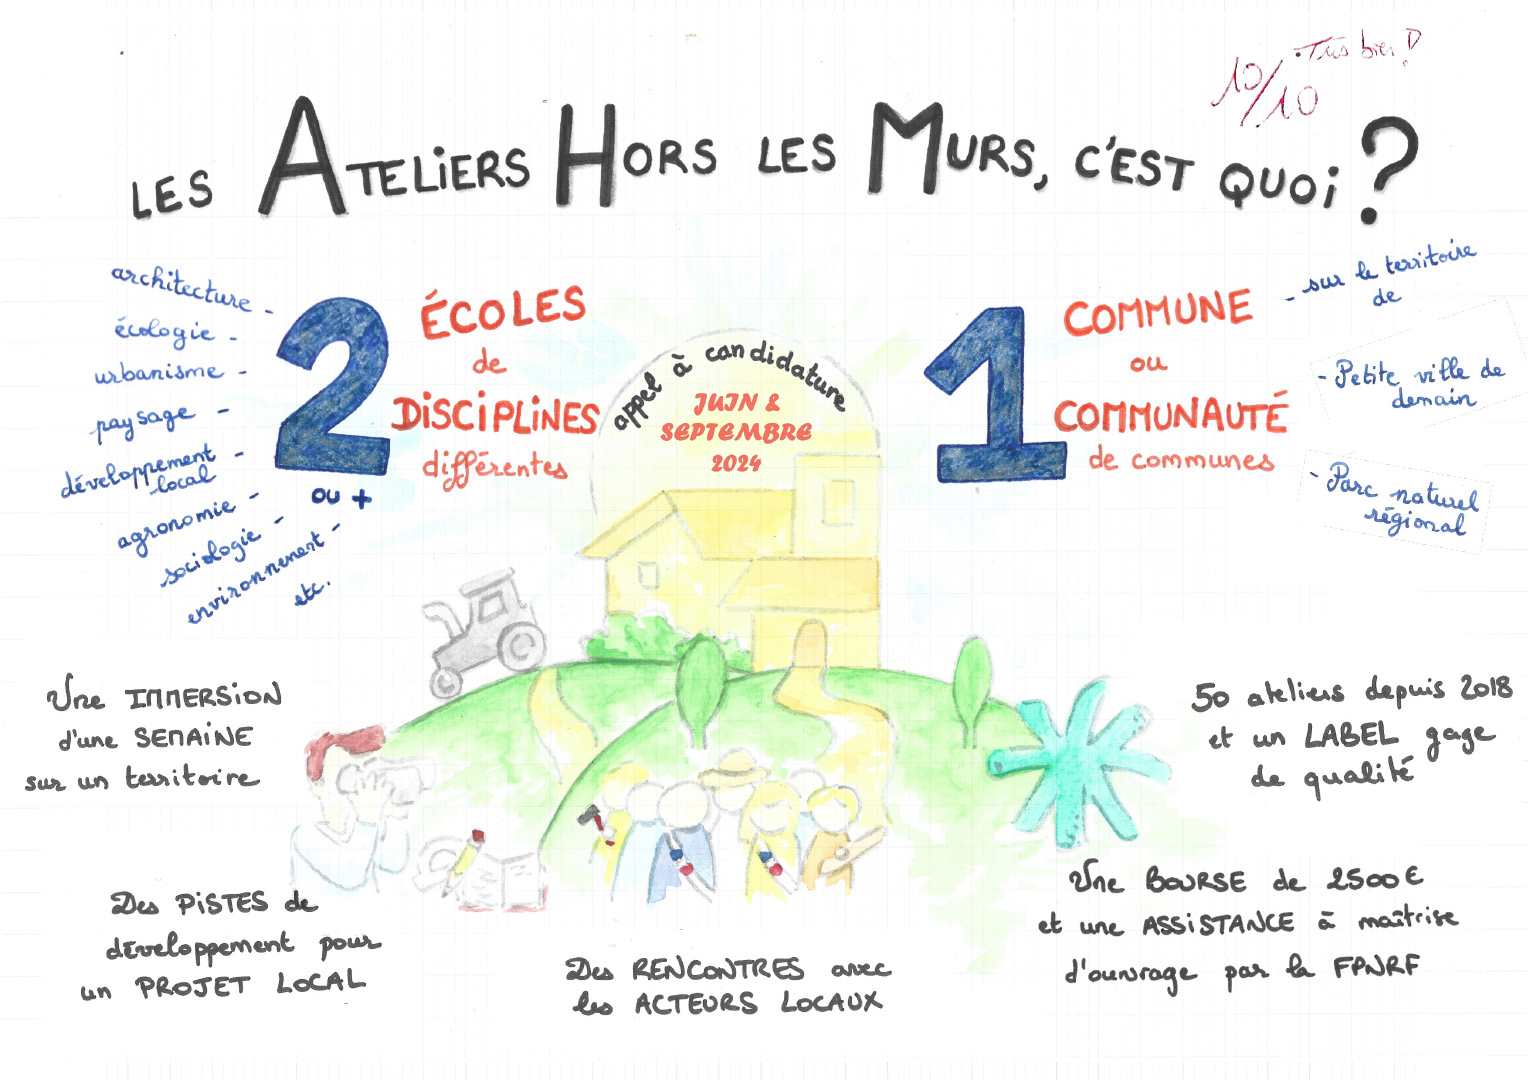 10/10
Très bien !
LES ATELIERS HORS LES MURS, C'EST QUOI ?
architecture -
écologie -
urbanisme -
paysage -
développement -
local
agronomie -
sociologie -
environnement -
etc.
2
ÉCOLES
de
DISCIPLINES
différentes
ou +
appel à candidature
JUIN &
SEPTEMBRE
2024
1
COMMUNE
ou
COMMUNAUTÉ
de communes
- sur le territoire
de
- Petite ville de
demain
- Parc naturel
régional
Une IMMERSION
d'une SEMAINE
sur un territoire
50 ateliers depuis 2018
et un LABEL gage
de qualité
Des PISTES de
développement pour
un PROJET LOCAL
Des RENCONTRES avec
les ACTEURS LOCAUX
Une BOURSE de 2500 €
et une ASSISTANCE à maîtrise
d'ouvrage par la FPNRF